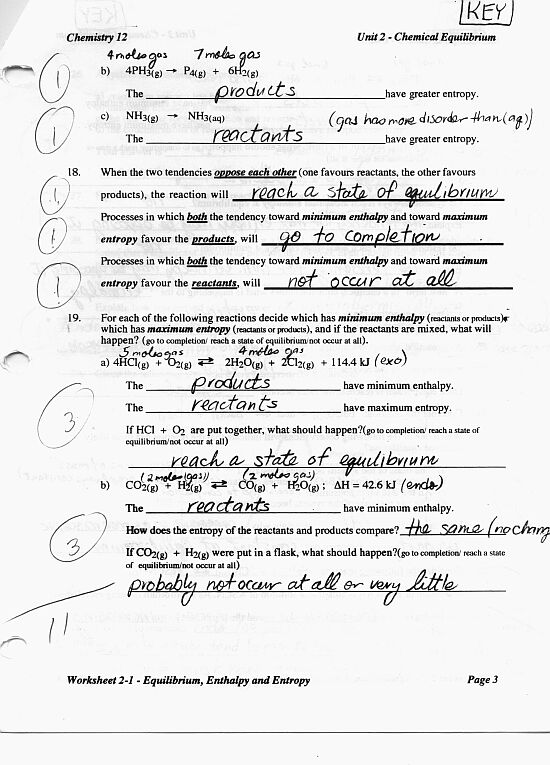 KEY
Chemistry 12 Unit 2 - Chemical Equilibrium
4 moles gas 7 moles gas
b) 4PH3(g) → P4(g) + 6H2(g)
1 The products have greater entropy.
c) NH3(g) → NH3(aq) (gas has more disorder than (aq))
1 The reactants have greater entropy.
18. When the two tendencies oppose each other (one favours reactants, the other favours
1 products), the reaction will reach a state of equilibrium
Processes in which both the tendency toward minimum enthalpy and toward maximum
1 entropy favour the products, will go to completion
Processes in which both the tendency toward minimum enthalpy and toward maximum
1 entropy favour the reactants, will not occur at all
19. For each of the following reactions decide which has minimum enthalpy (reactants or products),
which has maximum entropy (reactants or products), and if the reactants are mixed, what will
happen? (go to completion/ reach a state of equilibrium/not occur at all).
5 moles gas 4 moles gas
a) 4HCl(g) + O2(g) ⇄ 2H2O(g) + 2Cl2(g) + 114.4 kJ (exo)
The products have minimum enthalpy.
3 The reactants have maximum entropy.
If HCl + O2 are put together, what should happen?(go to completion/ reach a state of
equilibrium/not occur at all)
reach a state of equilibrium
(2 moles (gas)) (2 moles gas)
b) CO2(g) + H2(g) ⇄ CO(g) + H2O(g) ; ΔH = 42.6 kJ (endo)
The reactants have minimum enthalpy.
How does the entropy of the reactants and products compare? the same (no chang
3 If CO2(g) + H2(g) were put in a flask, what should happen?(go to completion/ reach a state
of equilibrium/not occur at all)
probably not occur at all or very little
11
Worksheet 2-1 - Equilibrium, Enthalpy and Entropy Page 3